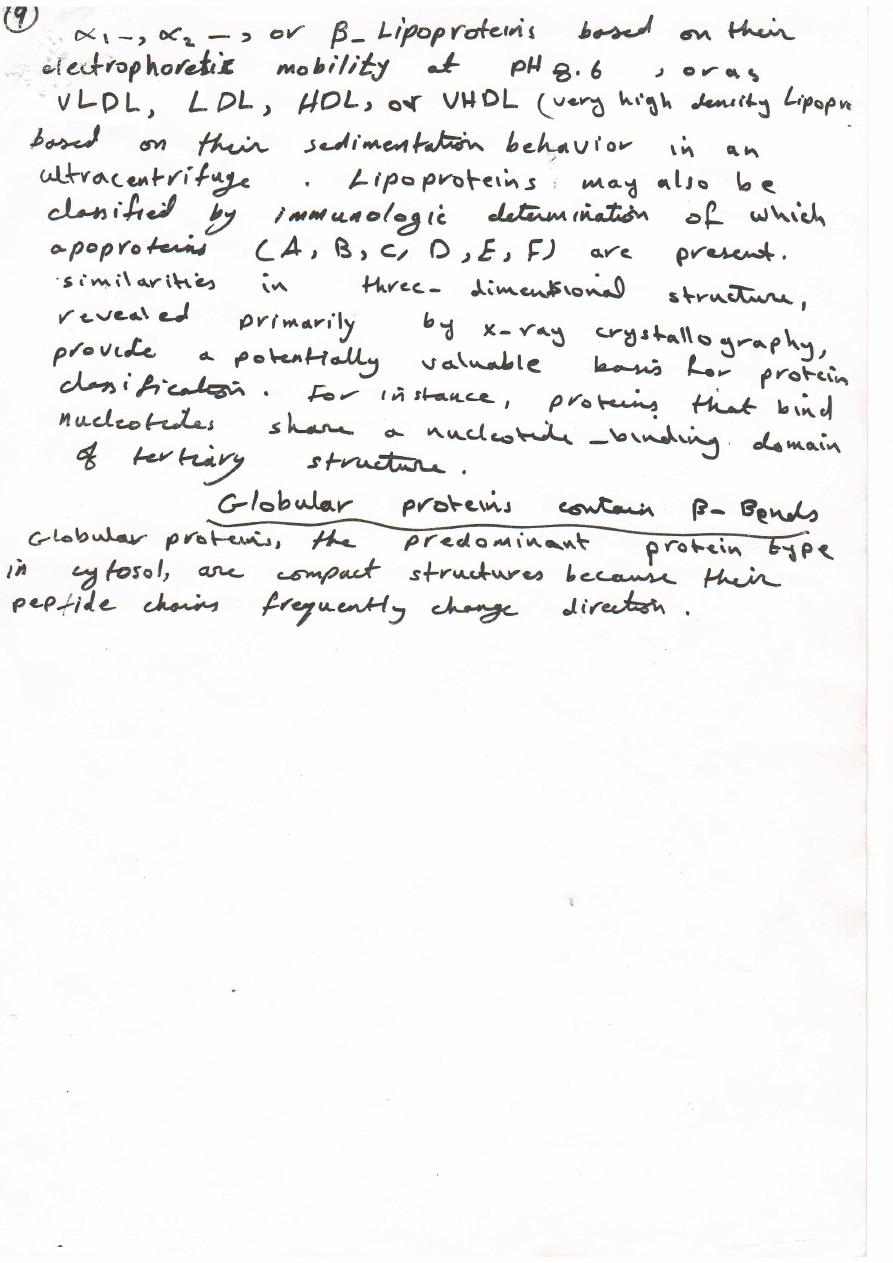 9
α1-, α2-, or β-Lipoproteins based on their
electrophoretic mobility at pH 8.6, or as
VLDL, LDL, HDL, or VHDL (very high density Lipopro
based on their sedimentation behavior in an
ultracentrifuge. Lipoproteins may also be
classified by immunologic determination of which
apoproteins (A, B, C, D, E, F) are present.
similarities in three-dimensional structure,
revealed primarily by x-ray crystallography,
provide a potentially valuable basis for protein
classification. For instance, proteins that bind
nucleotides share a nucleotide-binding domain
of tertiary structure.
Globular proteins contain β-Bends
Globular proteins, the predominant protein type
in cytosol, are compact structures because their
peptide chains frequently change direction.